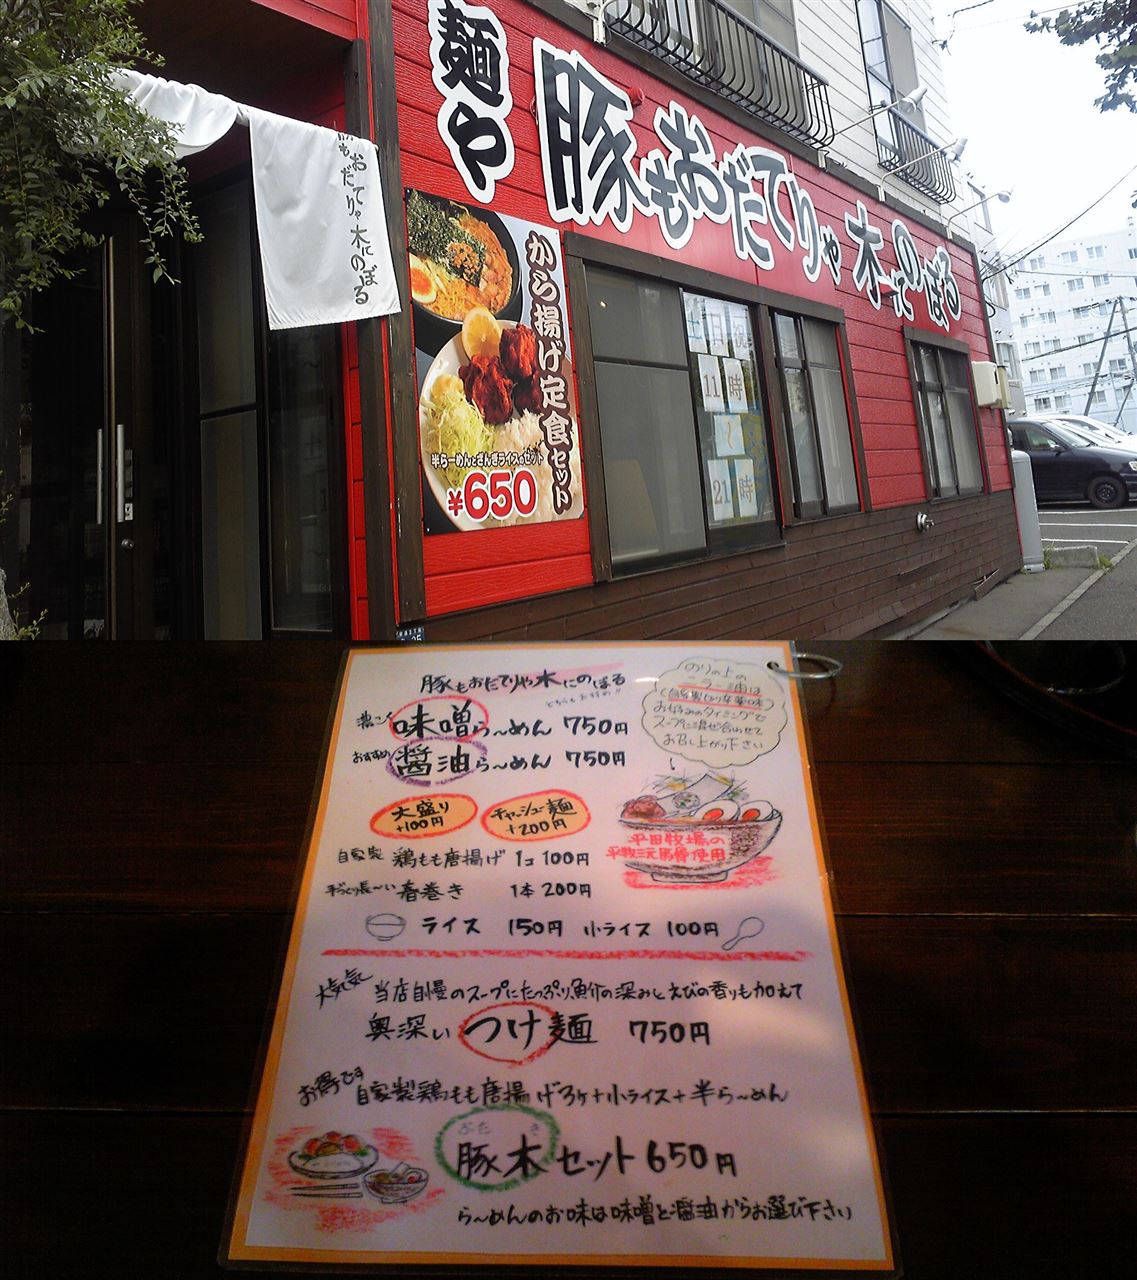 麺や
豚もおだてりゃ木にのぼる
豚も
おだてりゃ
木にのぼる
から揚げ定食セット
半らーめんとざんぎライスのセット
¥650
土日祝
11時
~
21時
豚もおだてりゃ木にのぼる
どちらもおすすめ!!
濃こく
味噌ら~めん 750円
おすすめ
醤油ら~めん 750円
のりの上の
ニラー油は
(自家製ピリ辛薬味)
お好みのタイミングで
スープに混ぜ合わせて
お召し上がり下さい
大盛り
+100円
チャーシュー麺
+200円
平田牧場の
平牧三元豚骨使用
自家製 鶏もも唐揚げ 1コ 100円
手づくり長~い 春巻き 1本 200円
ライス 150円 小ライス 100円
大人気 当店自慢のスープにたっぷり魚介の深みとえびの香りも加えて
奥深い つけ麺 750円
お得です 自家製鶏もも唐揚げ3ケ+小ライス+半ら~めん
ぶた き
豚木セット 650円
ら~めんのお味は味噌と醤油からお選び下さい